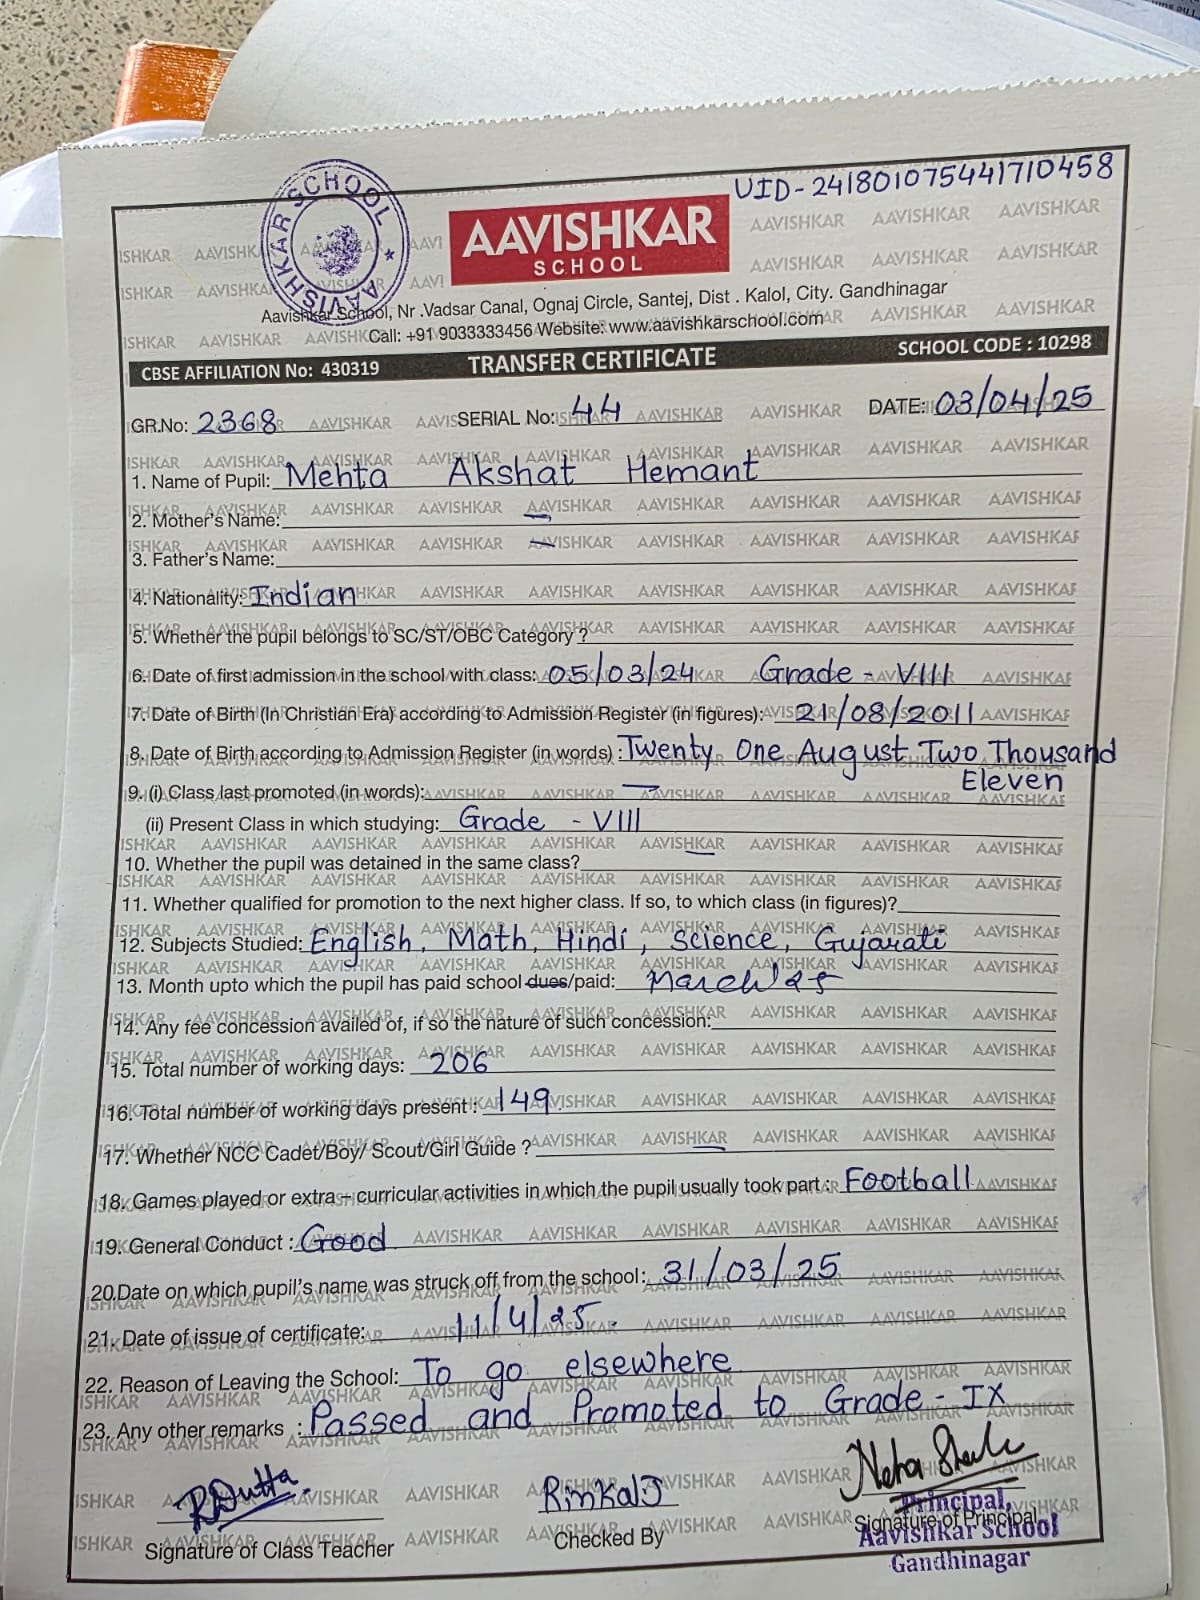 UID-241801075441710458
AAVISHKAR SCHOOL
AAVISHKAR
SCHOOL
Aavishkar School, Nr .Vadsar Canal, Ognaj Circle, Santej, Dist . Kalol, City. Gandhinagar
Call: +91 9033333456 Website: www.aavishkarschool.com
CBSE AFFILIATION No: 430319 TRANSFER CERTIFICATE SCHOOL CODE : 10298
GR.No: 2368 SERIAL No: 44 DATE: 03/04/25
1. Name of Pupil: Mehta Akshat Hemant
2. Mother's Name: —
3. Father's Name: —
4. Nationality: Indian
5. Whether the pupil belongs to SC/ST/OBC Category ?
6. Date of first admission in the school with class: 05/03/24 Grade - VIII
7. Date of Birth (In Christian Era) according to Admission Register (in figures): 21/08/2011
8. Date of Birth according to Admission Register (in words) : Twenty One August Two Thousand
Eleven
9. (i) Class last promoted (in words): —
(ii) Present Class in which studying: Grade - VIII
10. Whether the pupil was detained in the same class? —
11. Whether qualified for promotion to the next higher class. If so, to which class (in figures)?
12. Subjects Studied: English, Math, Hindi, Science, Gujarati
13. Month upto which the pupil has paid school dues/paid: March'25
14. Any fee concession availed of, if so the nature of such concession:
15. Total number of working days: 206
16. Total number of working days present : 149
17. Whether NCC Cadet/Boy/ Scout/Girl Guide ? —
18. Games played or extra – curricular activities in which the pupil usually took part : Football
19. General Conduct : Good
20.Date on which pupil's name was struck off from the school: 31/03/25
21. Date of issue of certificate: 11/4/25.
22. Reason of Leaving the School: To go elsewhere
23. Any other remarks : Passed and Promoted to Grade - IX
RDutta RinkalJ
Signature of Class Teacher Checked By Signature of Principal
Principal,
Aavishkar School
Gandhinagar